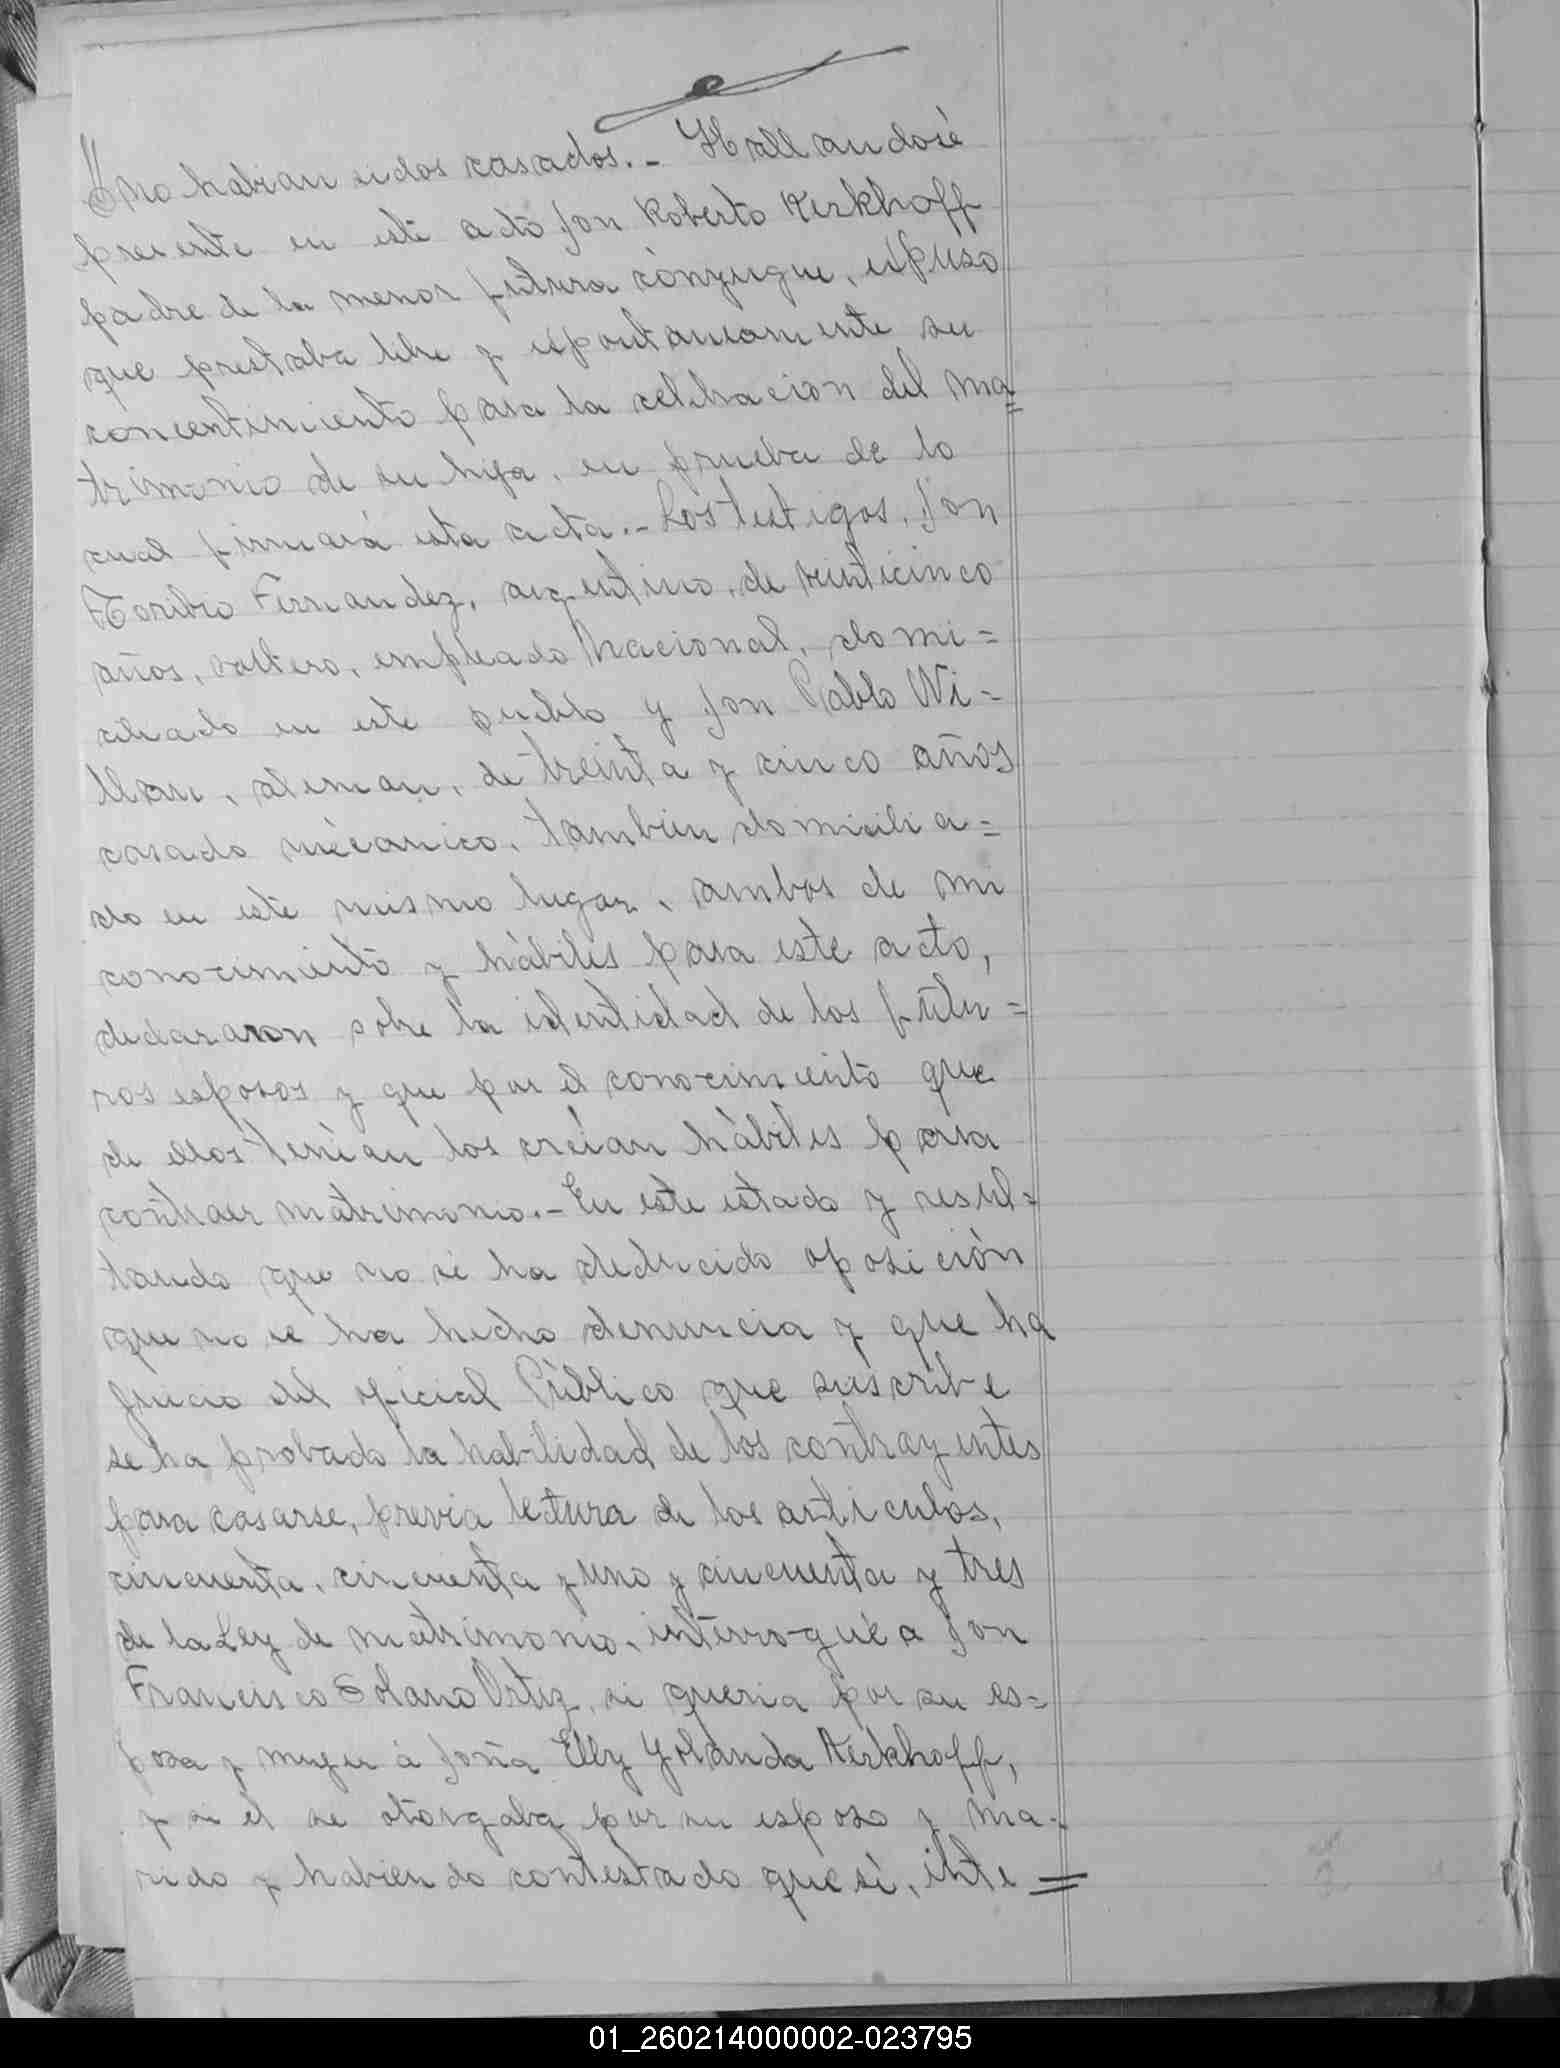 no habian sidos casados.- Hallandose
presente en este acto Don Roberto Kerkhoff
padre de la menor futura cónyugue, espuso
que prestaba libre y espontaneamente su
concentimiento para la celbracion del ma=
trimonio de su hija, en prueba de lo
cual firmará esta acta.- Los testigos, Don
Toribio Fernandez, argentino, de veinticinco
años, soltero, empleado Nacional, domi=
ciliado en este pueblo y Don Pablo Wi=
llan, aleman, de treinta y cinco años
casado mécanico, tambien domicilia=
do en este mismo lugar, ambos de mi
conocimiento y hàbiles para este acto,
declararon sobre la identidad de los futu=
ros esposos y que por el conocimiento que
de ellos tenian los creían hàbiles para
contraer matrimonio.- En este estado y resul=
tando que no se ha deducido oposición
que no se ha hecho denuncia y que ha
juicio del oficial Público que suscribe
se ha probado la habilidad de los contrayentes
para casarse, previa lectura de los articulos,
cincuenta, cincuenta y uno y cincuenta y tres
de la Ley de matrimonio, interrogué a Don
Francisco Solano Ortiz, si queria por su es=
posa y mujer à Doña Elly Yolanda Kerkhoff,
y si el se otorgaba por su esposo y ma-
rido y habiendo contestado que sì, inte=
01_260214000002-023795